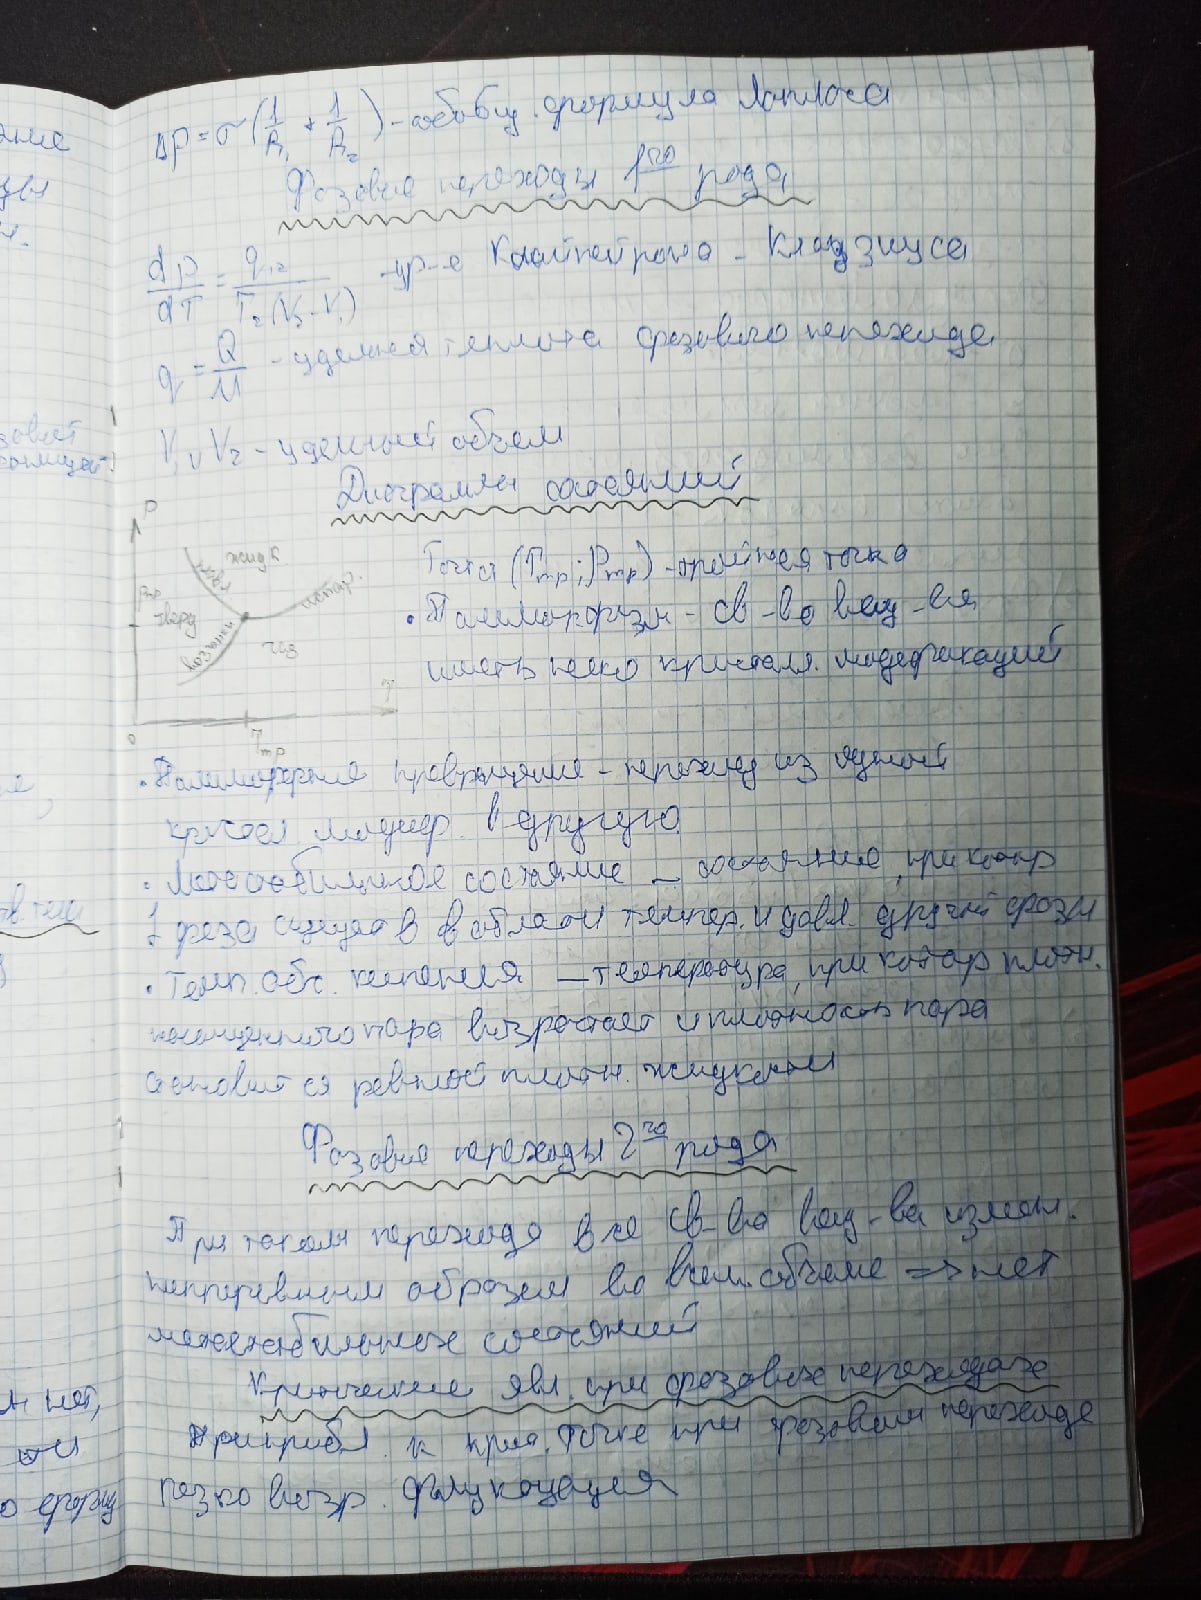 ание
ΔP = σ(1/R₁ + 1/R₂) - обобщ. формула Лапласа
Фазовые переходы 1го рода
dP/dT = q₁₂/T₂(V₂ - V₁) - ур-е Клапейрона - Клаузиуса
q = Q/M - удельная теплота фазового перехода
V₁, V₂ - удельный объем
Диаграммы состояний
P
жидк
плавл
испар.
Pтр
тверд
возгонки
газ
T
0
Tтр
Точка (Tтр; Pтр) - тройная точка
• Полиморфизм - св-во вещ-ва
иметь неско кристалл. модификаций
• Полиморфные превращение - переход из одной
кристал модиф. в другую
• Метастабильное состояние - состояние, при котор
1 фаза существ в области темпер. и давл. другой фазы
• Темп. абс. кипения - температура, при котор плотн.
насыщенного пара возрастает и плотность пара
становится равной плотн. жидкости
Фазовые переходы 2го рода
При таком переходе все св-ва вещ-ва измен.
непрерывным образом во всем объеме => нет
метастабильных состояний
Критические явл. при фазовых переходах
При прибл. к крит. точке при фазовом переходе
резко возр. флуктуация
нет,